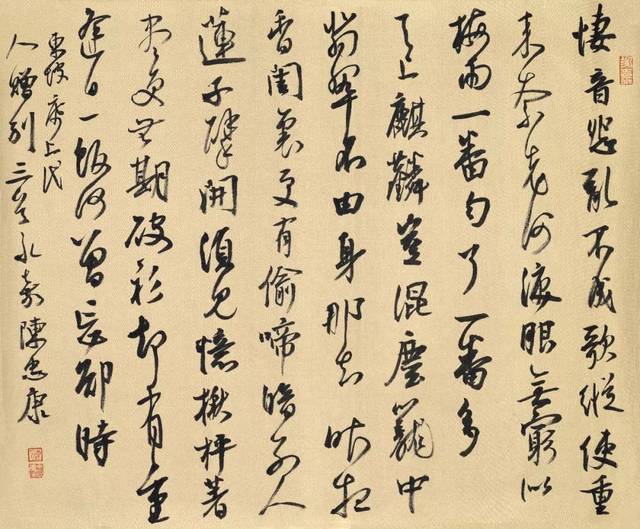 悽音怨亂不成歌縱使重
来奈老何淚眼無窮似
梅雨一番匀了一番多
天上麒麟豈混塵籠中
翡翠不由身那知昨夜
香閨裏更有偷啼暗别人
蓮子擘開須見憶楸枰著
盡更无期破衫却有重
逢日一飯何曾忘却時
東坡席上代
人贈别三首永嘉陳忠康